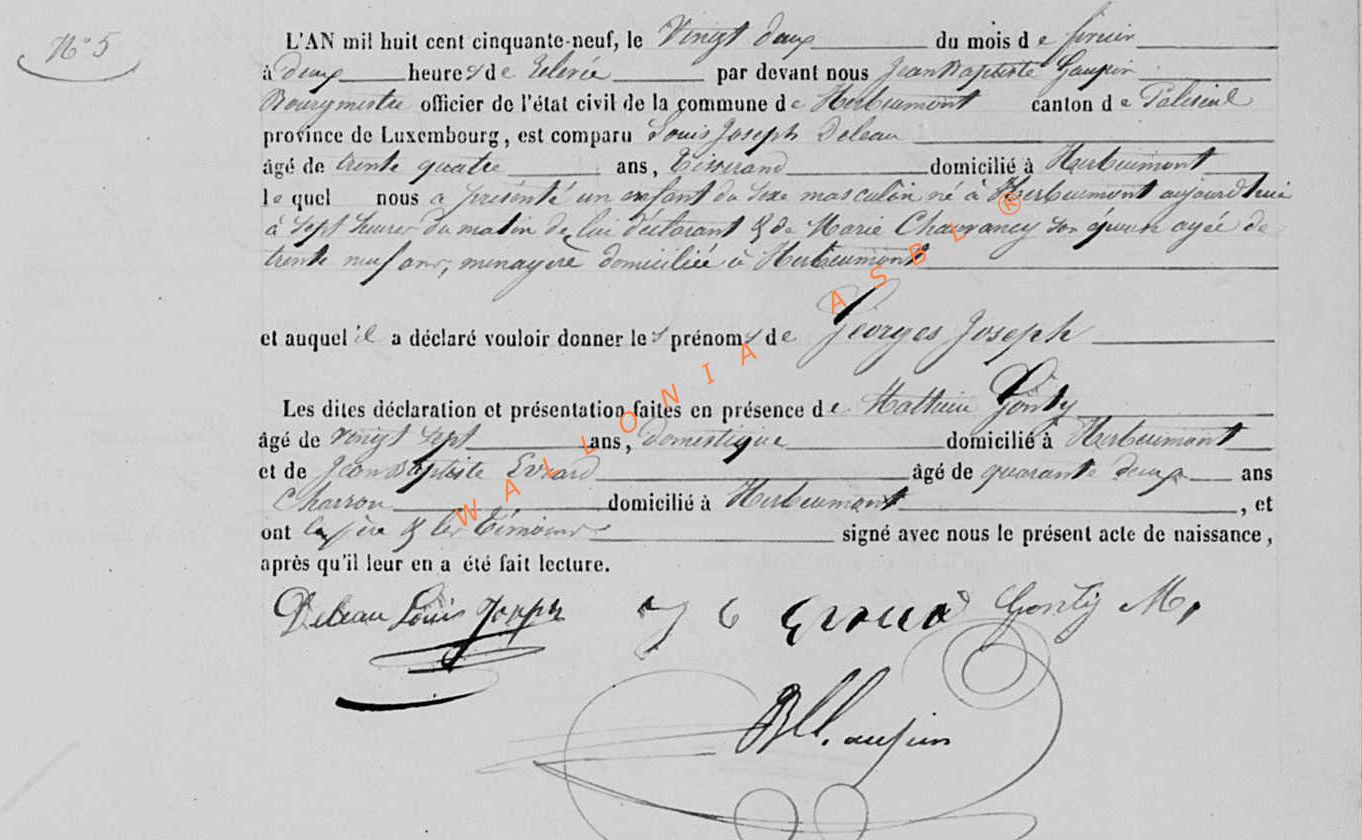 N° 5
L'AN mil huit cent cinquante-neuf, le Vingt deux du mois de fevrier
à deux heures de relevée par devant nous Jean Baptiste Gaupin
Bourgmestre officier de l'état civil de la commune de Herbeumont canton de Paliseul
province de Luxembourg, est comparu Louis Joseph Deleau
âgé de trente quatre ans, Tisserand domicilié à Herbeumont
lequel nous a présenté un enfant du sexe masculin né à Herbeumont aujourd'hui
à sept heures du matin de lui déclarant & de Marie Chauvancy son épouse agée de
trente neuf ans, menagère domiciliée à Herbeumont
et auquel il a déclaré vouloir donner les prénoms de Georges Joseph
Les dites déclaration et présentation faites en présence de Mathieu Gonty
âgé de vingt sept ans, domestique domicilié à Herbeumont
et de Jean Baptiste Evrard âgé de quarante deux ans
Charron domicilié à Herbeumont, et
ont le père & les Témoins signé avec nous le présent acte de naissance,
après qu'il leur en a été fait lecture.
Deleau Louis Joseph Gonty M.
WALLONIA ASBL ®